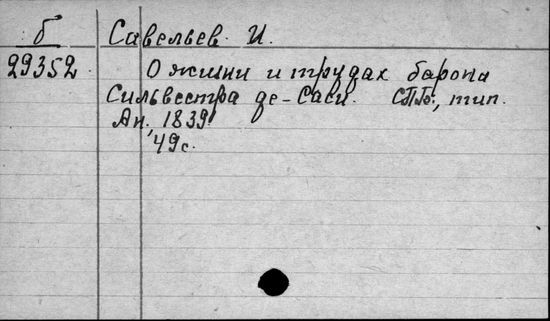 б
29352
Савельев И.
О жизни и трудах барона
Сильвестра де-Саси. СПБ., тип.
Ан., 1839
49с.